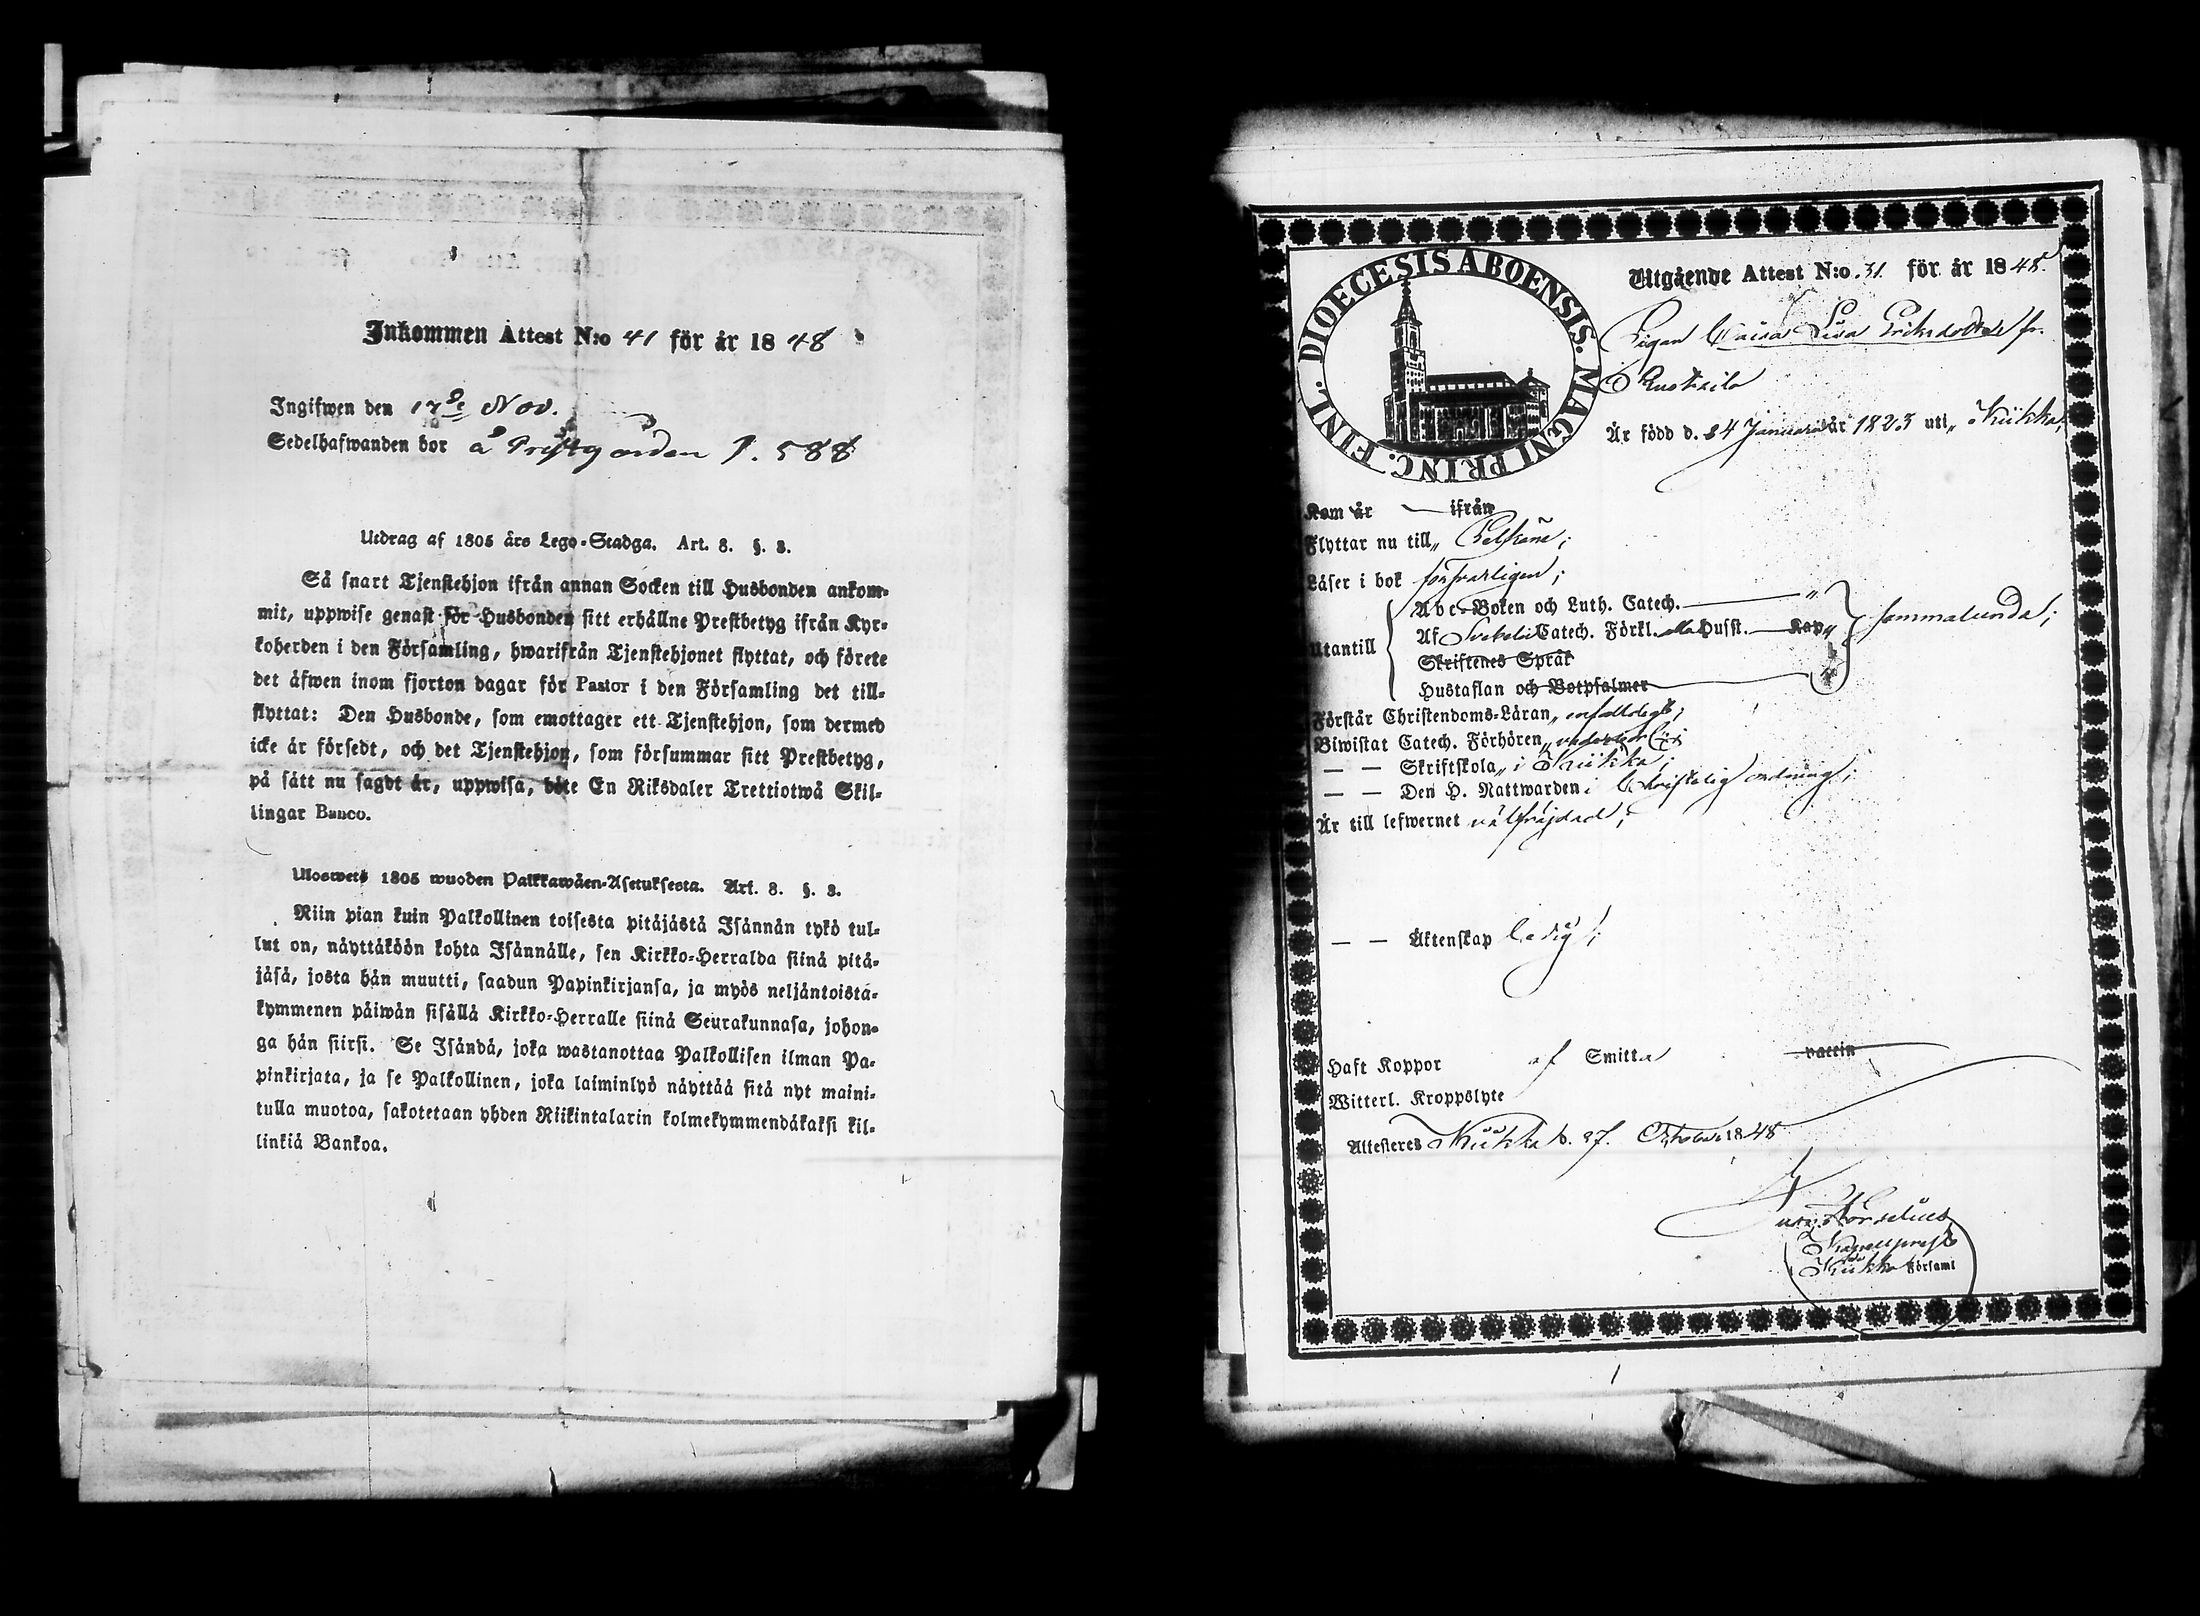 Inkommen Attest N:o 41 för år 1848
Ingifwen den 17de Nov.
Sedelhafwanden bor å Prestgården p. 588
Utdrag af 1805 års Lego-Stadga. Art. 8. §. 3.
Så snart Tjenstehjon ifrån annan Socken till Husbonden ankom-
mit, uppwise genast för Husbonden sitt erhållne Prestbetyg ifrån Kyr-
koherden i den Församling, hwarifrån Tjenstehjonet flyttat, och förete
det äfwen inom fjorton dagar för Pastor i den Församling det till-
flyttat: Den Husbonde, som emottager ett Tjenstehjon, som dermed
icke är försedt, och det Tjenstehjon, som försummar sitt Prestbetyg,
på sätt nu sagdt är, uppwisa, böte En Riksdaler Trettiotwå Skil-
lingar Banco.
Uloswete 1805 wuoden Palkkawäen-Asetuksesta. Art. 8. §. 3.
Niin pian kuin Palkollinen toisesta pitäjästä Isännän tykö tul-
lut on, näyttäköön kohta Isännälle, sen Kirkko-Herralda siinä pitä-
jäsä, josta hän muutti, saadun Papinkirjansa, ja myös neljäntoista-
kymmenen päiwän sisällä Kirkko-Herralle siinä Seurakunnasa, johon-
ga hän siirsi. Se Isändä, joka wastanottaa Palkollisen ilman Pa-
pinkirjata, ja se Palkollinen, joka laiminlyö näyttää sitä nyt maini-
tulla muotoa, sakotetaan yhden Riikintalarin kolmekymmendäkaksi kil-
linkiä Bankoa.
DIOECESIS ABOENSIS. MAGNI PRINC. FINL.
Utgående Attest N:o 31. för år 1848.
Pigan Caisa Lisa Eriksdotter fr.
Är född d. 24 Januarii år 1823 uti Kiikka;
Kom år — ifrån
Flyttar nu till Pelkäne;
Läser i bok försvarligen;
Utantill
Abc-Boken och Luth. Catech. — "
Af Svebelii Catech. Förkl. alla Husst. — Kap
Skriftenes Språk
Hustaflan och Botpsalmer
sammalunda;
Förstår Christendoms-Läran enfaldeligt;
Biwistat Catech. Förhören
— — Skriftskola i Kiikka;
— — Den H. Nattwarden i Christelig ordning;
Är till lefwernet välfräjdad;
— — Äktenskap ledig;
Haft Koppor af Smitta vaccin
Witterl. Kroppslyte
Attesteres Kiikka d. 27. October 1848
Kapellprest
i Kiikka Församl